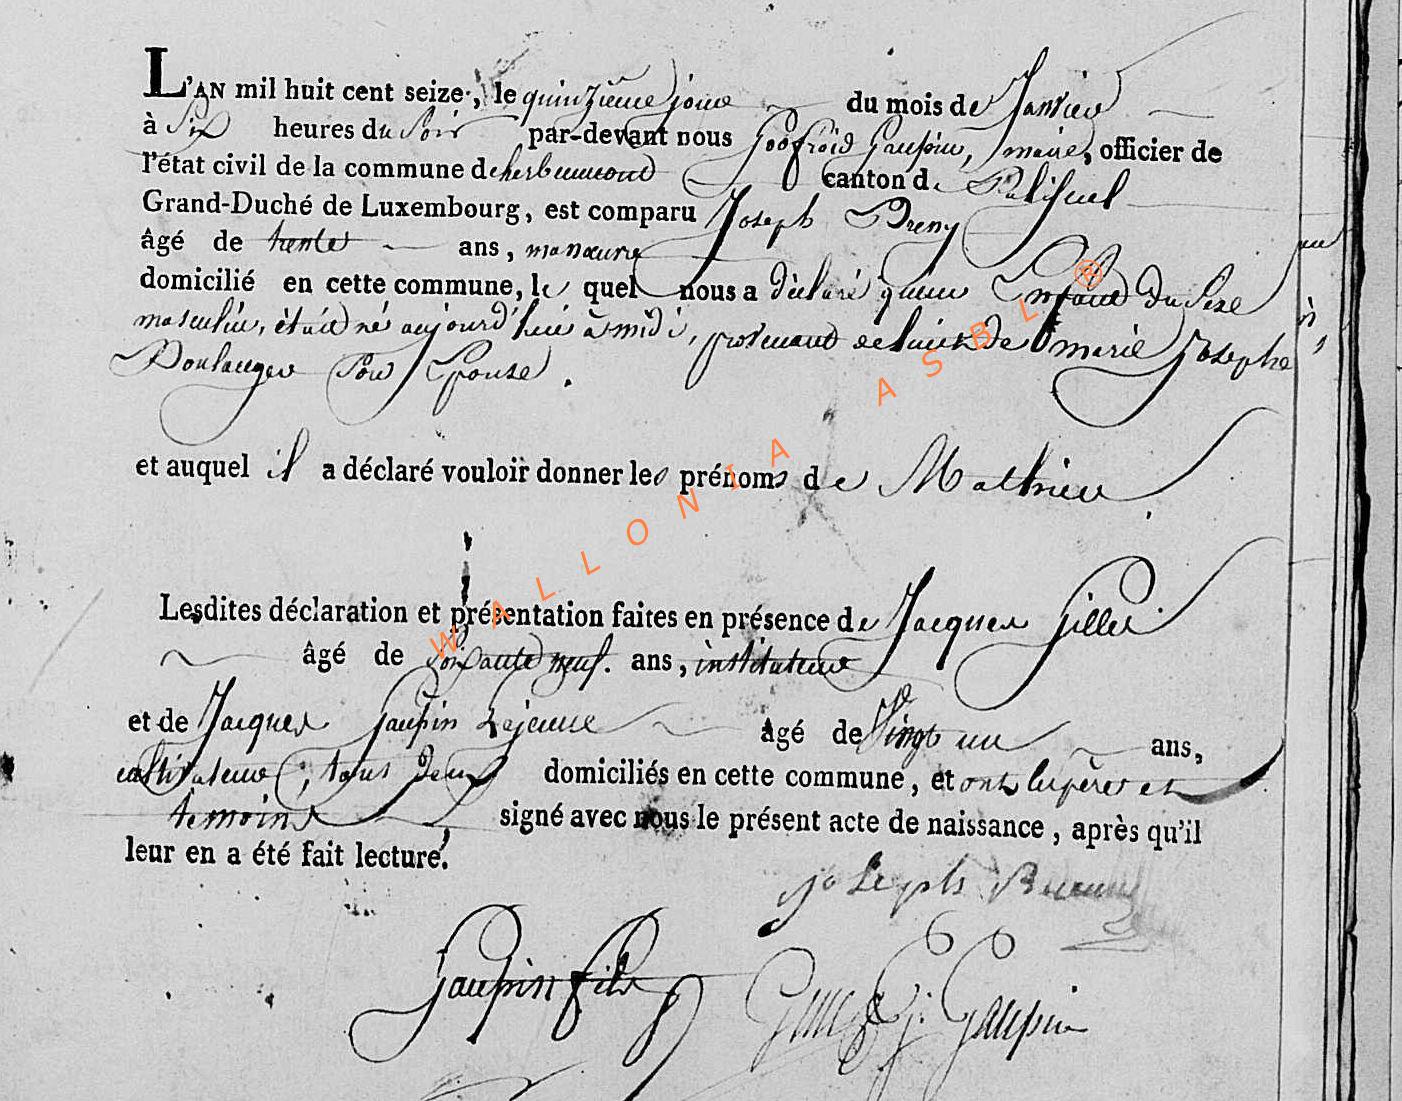 L'AN mil huit cent seize, le quinzieme jour du mois de Janvier
à Six heures du Soir par-devant nous Godfroid Gaupin, maire, officier de
l'état civil de la commune d'herbeumont canton de Palisuel
Grand-Duché de Luxembourg, est comparu Joseph Breny
âgé de trente ans, manœuvre
domicilié en cette commune, le quel nous a déclaré qu'un Enfant du Sexe
masculin, était né aujourd'hui à midi, provenant de lui et de marie Josephe
Boulanger Son Epouse.
et auquel il a déclaré vouloir donner les prénoms de Mathieu
Lesdites déclaration et présentation faites en présence de Jacques Gilles
âgé de Soixante neuf. ans, instituteur
et de Jacques Gaupin Lejeune âgé de Vingt un ans,
cultivateur, tous deux domiciliés en cette commune, et ont les pères et
temoins signé avec nous le présent acte de naissance, après qu'il
leur en a été fait lecture.
joseph
Gaupin fils
G: Gaupin
WALLONIA ASBL ®